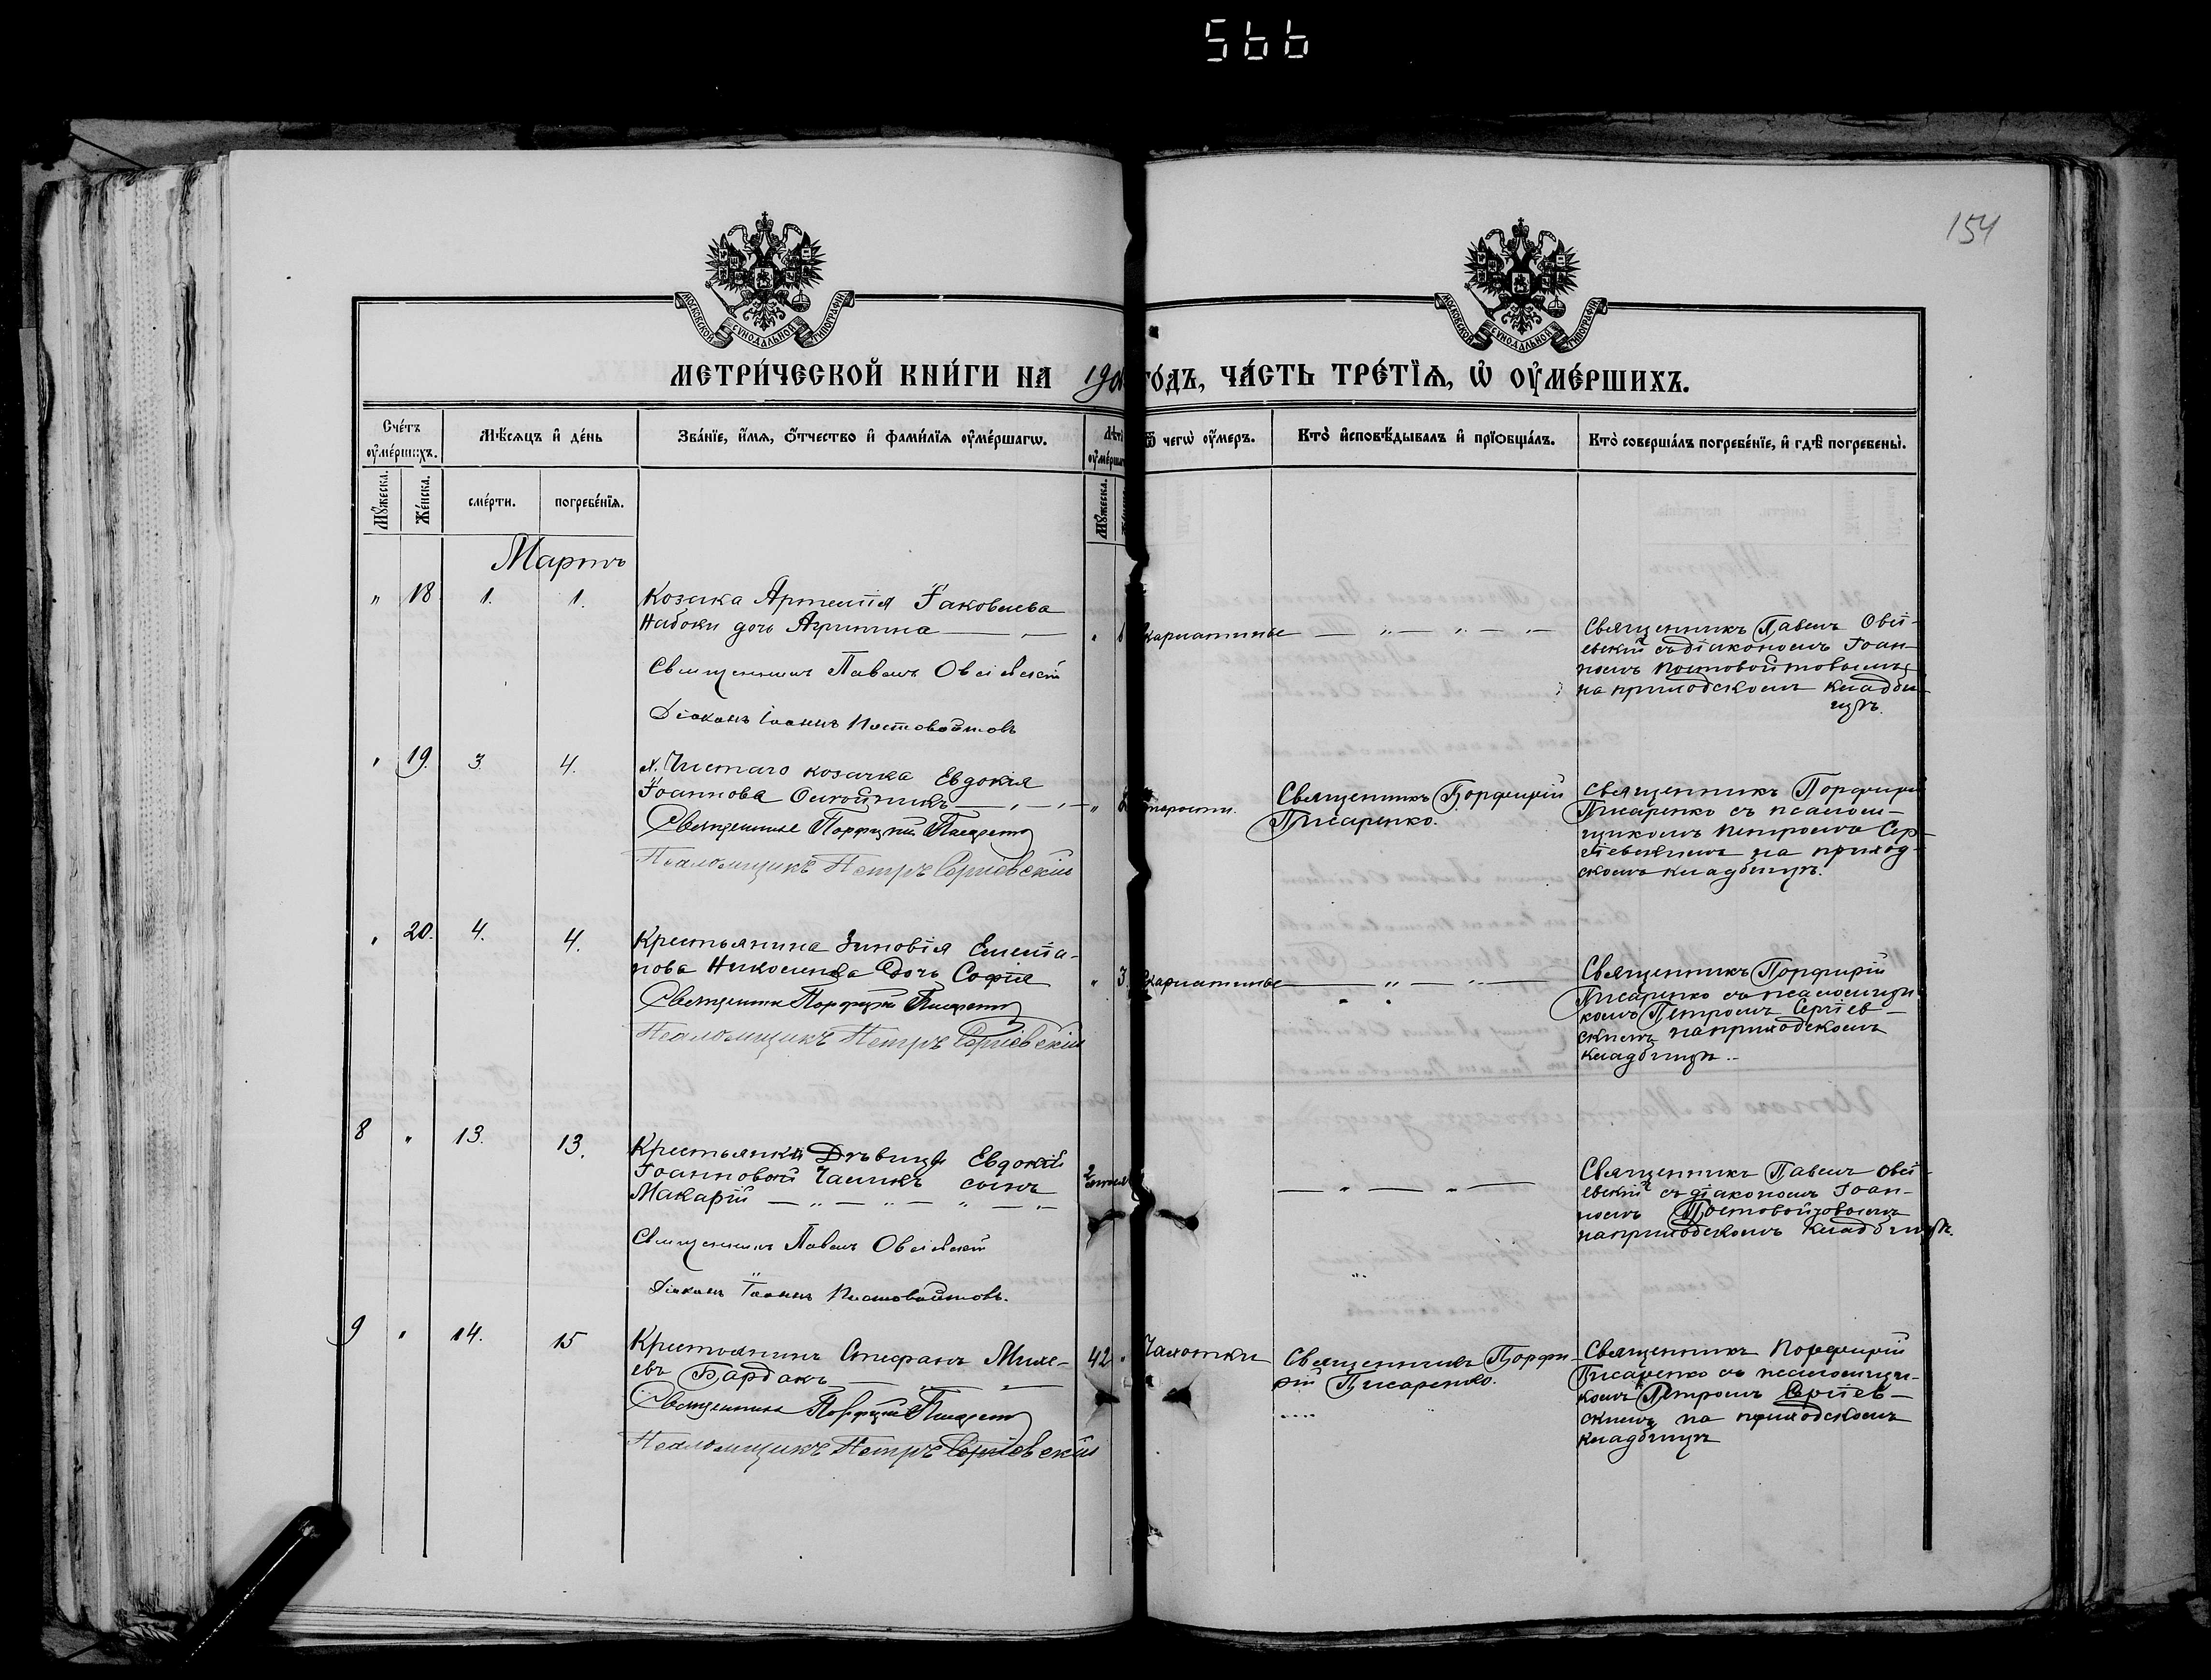 566
154
МОСКОВСКОЙ СУНОДАЛЬНОЙ ТИПОГРАФІИ
МОСКОВСКОЙ СУНОДАЛЬНОЙ ТИПОГРАФІИ
МЕТРИ́ЧЕСКОЙ КНИ́ГИ НА 190 ГО́ДЪ, ЧА́СТЬ ТРЕ́ТЇѦ, Ѡ҆ ОУ҆МЕ́РШИХЪ.
Сче́тъ оу҆ме́ршихъ.
Мѣ́сѧцъ и҆ де́нь
Зва́нїе, и҆́мѧ, ѻ҆́тчество и҆ фами́лїѧ оу҆ме́ршагѡ.
Ѿ чегѡ̀ оу҆́меръ.
Кто̀ и҆сповѣ́дывалъ и҆ прїѡбща́лъ.
Кто̀ соверша́лъ погребе́нїе, и҆ гдѣ̀ погребены̀.
Мꙋ́жеска.
Же́нска.
сме́рти.
погребе́нїѧ.
Мꙋ́жеска.
Мартъ
" 18. 1. 1.
Козака Артемія Іаковлева
Набоки дочь Агрипина — " —
Священникъ Павелъ Овсіевскій
Діаконъ Іоаннъ Постовойтовъ
" скарлатины — " — " — " —
Священникъ Павелъ Овсі-
евскій съ діакономъ Іоан-
номъ Постовойтовымъ
на приходскомъ кладби-
щѣ.
" 19. 3. 4.
козачка Евдокія
Іоаннова — " — " —
Священникъ Порфирій Писаренко
Псаломщикъ Петръ Сергіевскій
" старости.
Священникъ Порфирій
Писаренко.
Священникъ Порфирій
Писаренко съ псалом-
щикомъ Петромъ Сер-
гіевскимъ на приход-
скомъ кладбищѣ.
" 20. 4. 4.
Крестьянина Зиновія Емелiа-
нова дочь Софія
Священникъ Порфирій Писаренко
Псаломщикъ Петръ Сергіевскій
" 3 скарлатины — " — " —
Священникъ Порфирій
Писаренко съ псаломщи-
комъ Петромъ Сергіев-
скимъ на приходскомъ
кладбищѣ.
8 " 13. 13.
Крестьянки Дѣвицы Евдокіи
Іоанновой сынъ
Макарій — " — " — " — "
Священникъ Павелъ Овсіевскій
Діаконъ Іоаннъ Постовойтовъ.
2
— " — " —
Священникъ Павелъ Овсі-
евскій съ діакономъ Іоан-
номъ Постовойтовымъ
на приходскомъ кладбищѣ.
9 " 14. 15
Крестьянинъ Стефанъ Михе-
евъ Бардакъ — " — " —
Священникъ Порфирій Писаренко
Псаломщикъ Петръ Сергіевскій
42 " Чахотки
Священникъ Порфи-
рій Писаренко.
Священникъ Порфирій
Писаренко съ псаломщи-
комъ Петромъ Сергіев-
скимъ на приходскомъ
кладбищѣ